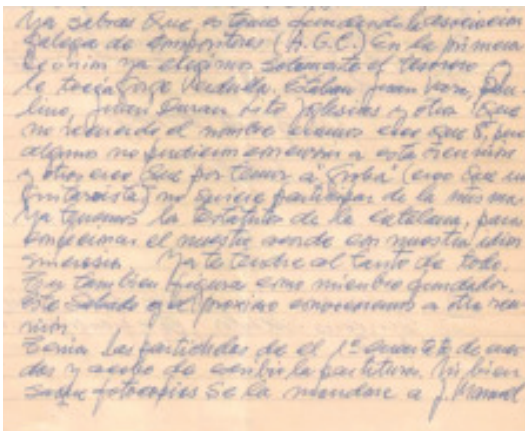 Ya sabras que estamos fundando la asociacion
Galega de Compositores (A.G.C.) En la primera
reunion ya elegimos solamente el tesorero
le Jorge Verdulla. Estaban Juan Vara, Pau-
lino, Juan Duran Lito Yglesias y otros que
no recuerdo el nombre eramos creo que 8, pues
algunos no pudieron a esta reunion
y otros creo que por temor a Groba (creo que un
guitarrista) no quiere participar de la misma
Ya tenemos los Estatutos de la catalana, para
confeccionar el nuestro acorde con nuestra idios
sincrasia. Ya te tendre al tanto de todo.
Tu tambien figuras como miembro fundador.
este Sabado o el proximo convocaremos a otra reu
nión.
Tenia las partichelas de el 1º cuarteto de cuer
das y acabo de escribir la partitura. Si bien
saque fotocopias se la mandare a J. Manuel